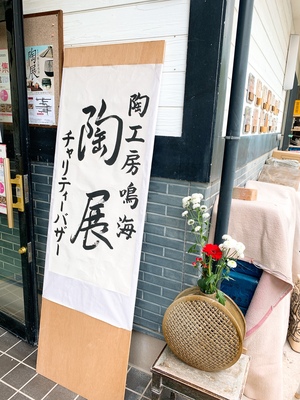 陶工房鳴海
陶展
チャリティーバザー
陶展